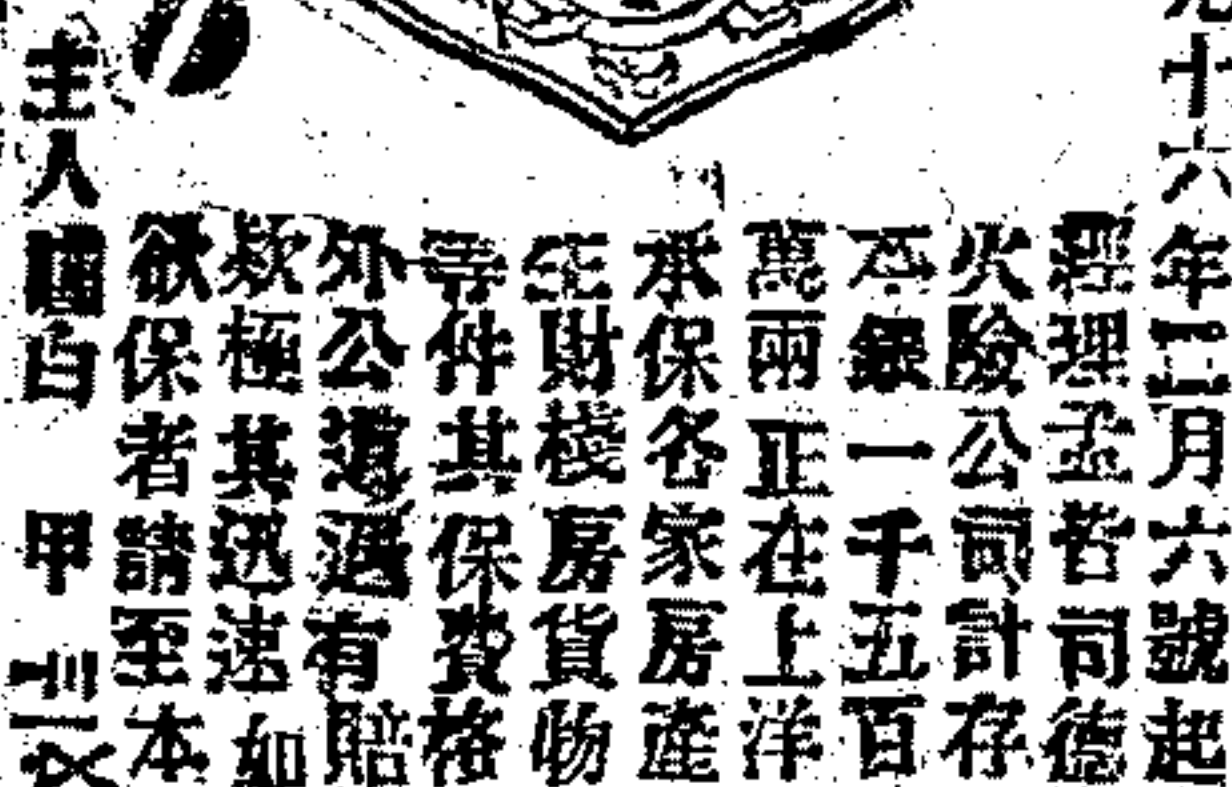 十六年二月六號起
經理孟皆司德
火險公司計存
本銀一千五百
萬兩正在上洋
承保各家房產
生財棧房貨物
等件其保費格
外公道遇有賠
欵極其迅速如
欲保者請至本
主人啓白 甲